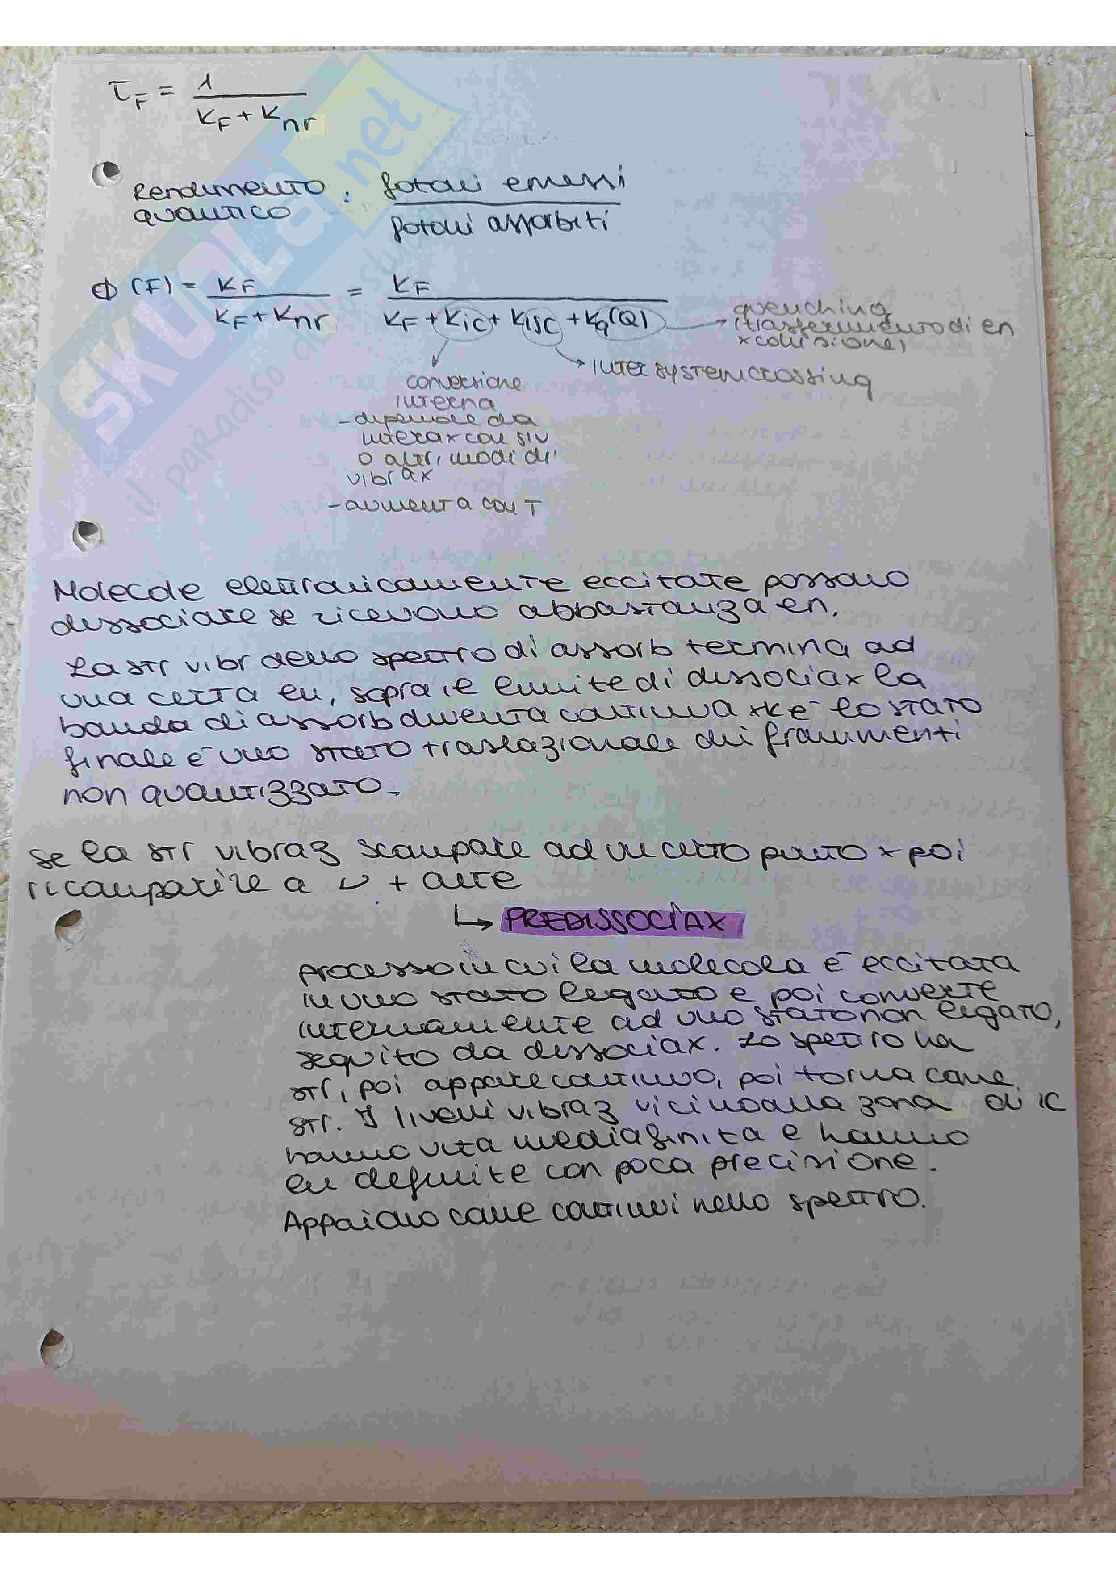 τF = 1 / (KF + Knr)
Rendimento quantico : fotoni emessi / fotoni assorbiti
ϕ (F) = KF / (KF + Knr) = KF / (KF + Kic + Kisc + Kq(Q))
quenching
(trasferimento di en
x collisione)
intersystem crossing
conversione
interna
- dipende da
interax con slv
o altri modi di
vibrax
- aumenta con T
Molecole elettronicamente eccitate possono
dissociare se ricevono abbastanza en.
La str vibr dello spettro di assorb termina ad
una certa en, sopra il limite di dissociax la
banda di assorb diventa continua xké lo stato
finale è uno stato traslazionale dei frammenti
non quantizzato.
Se la str vibraz scompare ad un certo punto x poi
ricomparire a ν + alte
↳ PREDISSOCIAX
processo in cui la molecola è eccitata
in uno stato legato e poi converte
internamente ad uno stato non legato,
seguito da dissociax. Lo spettro ha
str, poi appare continuo, poi torna come
str. I livelli vibraz vicino alla zona di IC
hanno vita media finita e hanno
en definite con poca precisione.
Appaiono come continui nello spettro.
SKUOLA.net
il paradiso dello studente